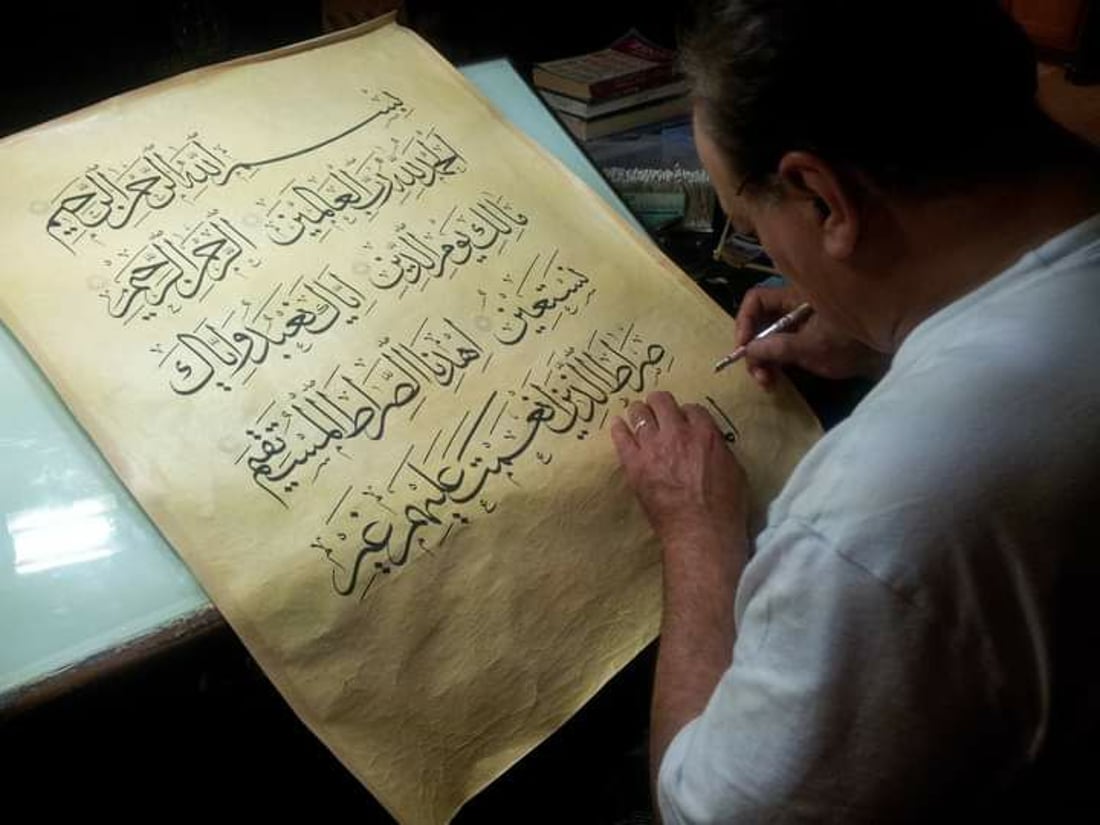 بسم الله الرحمن الرحيم
الحمد لله رب العالمين الرحمن الرحيم
مالك يوم الدين اياك نعبد واياك
نستعين اهدنا الصراط المستقيم
صراط الذين انعمت عليهم غير
الم